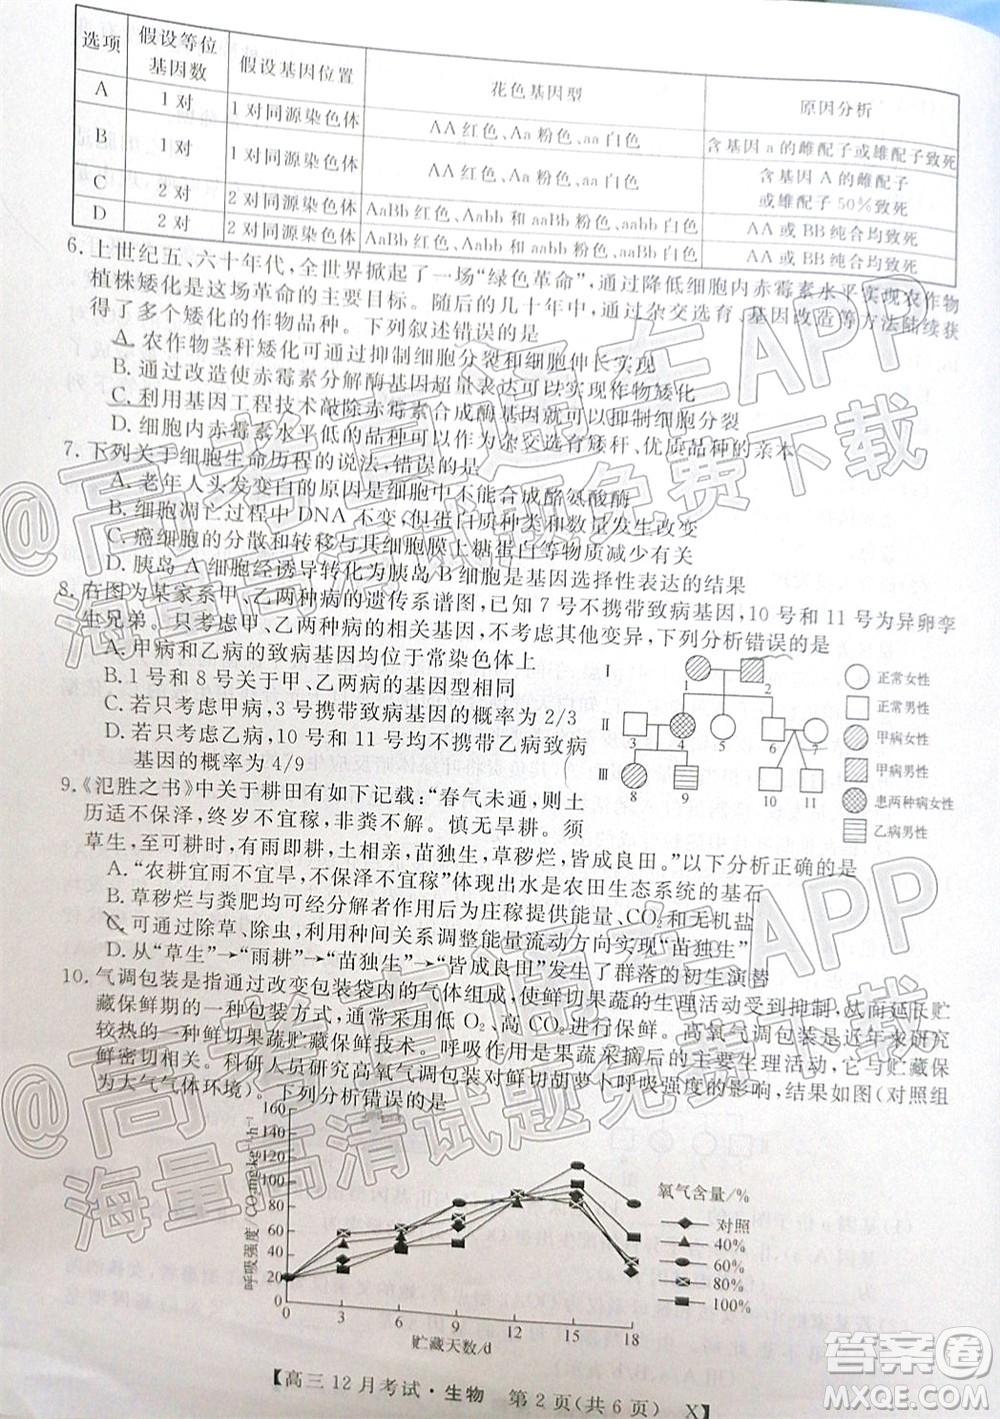 选项 假设等位基因数 假设基因位置 花色基因型 原因分析
A 1 对 1 对同源染色体 AA 红色、Aa 粉色、aa 白色 含基因 a 的雌配子或雄配子致死
B 1 对 1 对同源染色体 AA 红色、Aa 粉色、aa 白色 含基因 A 的雌配子或雄配子 50%致死
C 2 对 2 对同源染色体 AaBb 红色、Aabb 和 aaBb 粉色、aabb 白色 AA 或 BB 纯合均致死
D 2 对 2 对同源染色体 AaBb 红色、Aabb 和 aaBb 粉色、aabb 白色 AA 或 BB 纯合均致死
6. 上世纪五、六十年代，全世界掀起了一场“绿色革命”，通过降低细胞内赤霉素水平实现农作物
植株矮化是这场革命的主要目标。随后的几十年中，通过杂交选育、基因改造等方法陆续获
得了多个矮化的作物品种。下列叙述错误的是
A. 农作物茎秆矮化可通过抑制细胞分裂和细胞伸长实现
B. 通过改造使赤霉素分解酶基因超量表达可以实现作物矮化
C. 利用基因工程技术敲除赤霉素合成酶基因就可以抑制细胞分裂
D. 细胞内赤霉素水平低的个体可以作为杂交选育矮秆、优质品种的亲本
7. 下列关于细胞生命历程的说法，错误的是
A. 老年人头发变白的原因是细胞中不能合成酪氨酸酶
B. 细胞凋亡过程中 DNA 不变，但蛋白质种类和数量发生改变
C. 癌细胞的分散和转移与其细胞膜上糖蛋白等物质减少有关
D. 胰岛 A 细胞经诱导转化为胰岛 B 细胞是基因选择性表达的结果
8. 右图为某家系甲、乙两种病的遗传系谱图，已知 7 号不携带致病基因，10 号和 11 号为异卵孪
生兄弟。只考虑甲、乙两病，不考虑其他变异，下列分析错误的是
A. 甲病和乙病的致病基因均位于常染色体上
B. 1 号和 8 号关于甲、乙两病的基因型相同
C. 若只考虑甲病，3 号携带致病基因的概率为 2/3
D. 若只考虑甲病，10 号和 11 号均不携带致病
基因的概率为 4/9
Ⅰ
1 2
Ⅱ
3 4 5 6 7
Ⅲ
8 9 10 11
正常女性
正常男性
甲病女性
甲病男性
患两种病女性
乙病男性
9. 《氾胜之书》中关于耕田有如下记载：“春气未通，则土
历适不保泽，终岁不宜稼，非粪不解。慎无旱耕。须
草生，至可耕时，有雨即耕，土相亲，苗独生，草秽烂，皆成良田。”以下分析正确的是
A. “农耕宜雨不宜旱，不保泽不宜稼”体现出水是农田生态系统的基石
B. 草秽烂与粪肥均可经分解者作用后为庄稼提供能量、CO₂ 和无机盐
C. 可通过除草、除虫，利用种间关系调节能量流动方向实现“苗独生”
D. 从“草生”→“雨耕”→“苗独生”→“皆成良田”发生了群落的初生演替
10. 气调包装是指通过改变包装袋内的气体组成，使鲜切果蔬的生理活动受到抑制，从而延长贮
藏保鲜期的一种包装方式，多采用低 O₂、高 CO₂ 进行保鲜。高氧气调包装是近年来研究
较热的一种鲜切果蔬贮藏保鲜技术。呼吸作用是果蔬采摘后的主要生理活动，它与贮藏保
鲜密切相关。科研人员研究高氧气调包装对鲜切胡萝卜呼吸强度的影响，结果如图（对照组
为大气气体环境）。下列分析错误的是
呼吸强度/(CO₂mg·kg⁻¹·h⁻¹)
160
140
120
100
80
60
40
20
0
0 3 6 9 12 15 18
贮藏天数/d
氧气含量/%
对照
40%
60%
80%
100%
【高三 12 月考试·生物 第 2 页(共 6 页) X】
@高考直通车APP
海量高清试题免费下载
@高考直通车APP
海量高清试题免费下载
答案圈
MXQE.COM